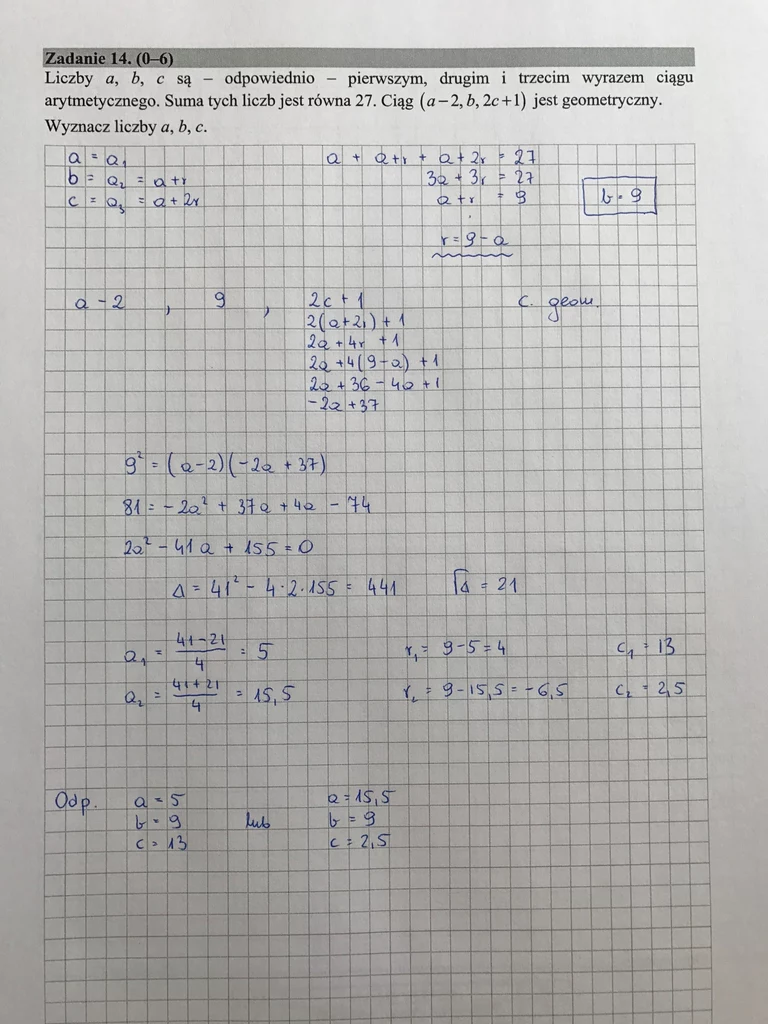 Zadanie 14. (0–6)
Liczby a, b, c są – odpowiednio – pierwszym, drugim i trzecim wyrazem ciągu
arytmetycznego. Suma tych liczb jest równa 27. Ciąg (a−2, b, 2c+1) jest geometryczny.
Wyznacz liczby a, b, c.
a = a₁ a + a+r + a+2r = 27
b = a₂ = a+r 3a + 3r = 27
c = a₃ = a + 2r a+r = 9 b = 9
r = 9 - a
a - 2 , 9 , 2c + 1 c. geom.
2(a+2r) + 1
2a + 4r + 1
2a + 4(9-a) + 1
2a + 36 - 4a + 1
-2a + 37
9² = (a-2)(-2a + 37)
81 = -2a² + 37a + 4a - 74
2a² - 41a + 155 = 0
Δ = 41² - 4·2·155 = 441 √Δ = 21
a₁ = (41-21)/4 = 5 r₁ = 9-5 = 4 c₁ = 13
a₂ = (41+21)/4 = 15,5 r₂ = 9-15,5 = -6,5 c₂ = 2,5
Odp. a = 5 a = 15,5
b = 9 lub b = 9
c = 13 c = 2,5